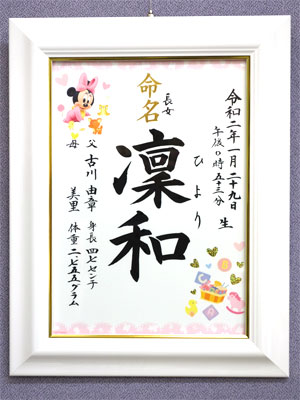 令和二年一月二十九日 生
午後〇時五十三分
ひより
長女
命名
凜和
父 古川 由章 身長 四七センチ
母 美里 体重 二、七五五グラム